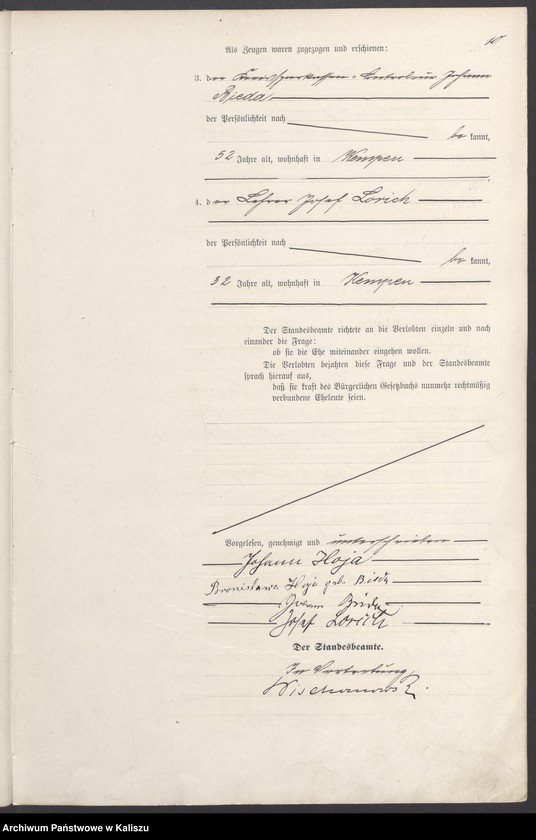 10
Als Zeugen waren zugezogen und erschienen:
3. der Kreissparkassen-Kontrolleur Johann
Bieda
der Persönlichkeit nach
bekannt,
52 Jahre alt, wohnhaft in Kempen
4. der Lehrer Josef Lorich
der Persönlichkeit nach
bekannt,
32 Jahre alt, wohnhaft in Kempen
Der Standesbeamte richtete an die Verlobten einzeln und nach
einander die Frage:
ob sie die Ehe miteinander eingehen wollen.
Die Verlobten bejahten diese Frage und der Standesbeamte
sprach hierauf aus,
daß sie kraft des Bürgerlichen Gesetzbuchs nunmehr rechtmäßig
verbundene Eheleute seien.
Vorgelesen, genehmigt und unterschrieben
Johann Hoja
Bronislawa Hoja geb.
Johann Bieda
Josef Lorich
Der Standesbeamte.
In Vertretung
Archiwum Państwowe w Kaliszu